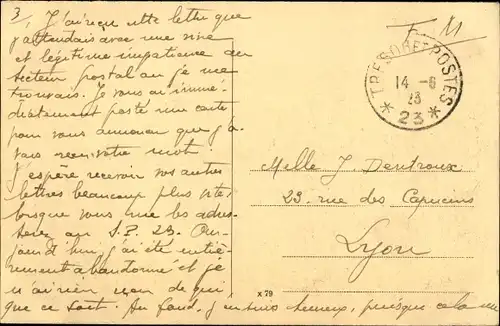 3/. J'ai reçu cette lettre que
j'attendais avec une vive
et légitime impatience au
secteur postal où je me
trouvais. Je vous ai immé-
diatement posté une carte
pour vous annoncer que j'a-
vais reçu votre mot
j'espère recevoir vos autres
lettres beaucoup plus vite,
lorsque vous me les adres-
serez au S.P. 23. Au-
jourd'hui j'ai été entiè-
rement abandonné et je
n'ai rien reçu de qui
que ce soit. Au fond, j'en suis heureux, puisque cela me
F. M
TRESOR ET POSTES
14 -6
23
* 23 *
Melle J Dentroux
23. rue des Capucins
Lyon
x 79